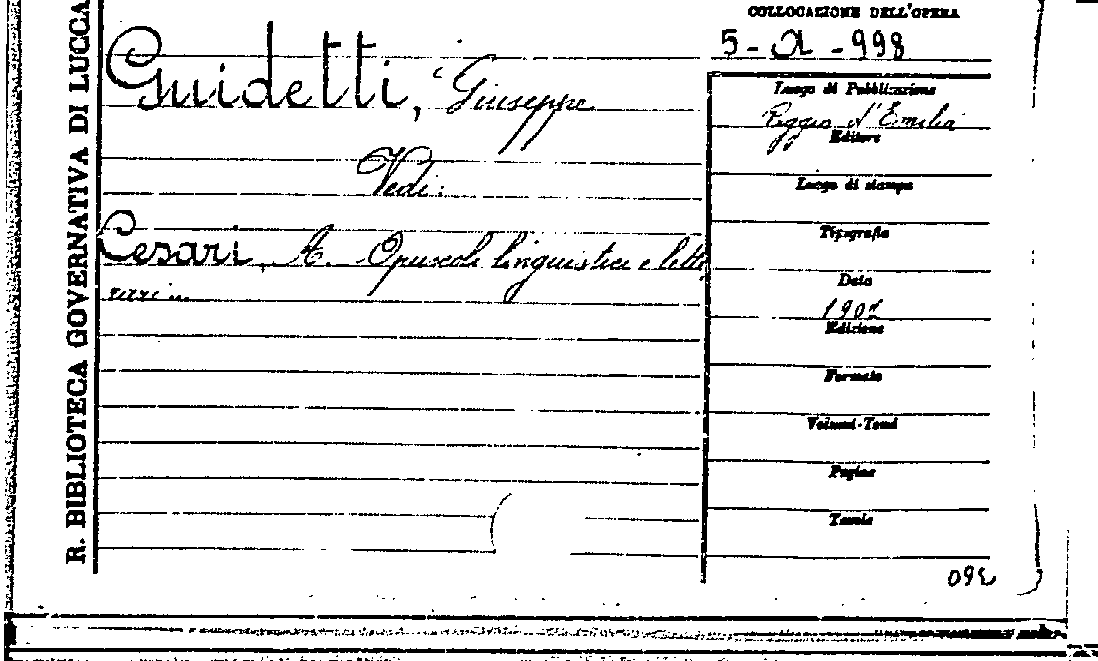 R. BIBLIOTECA GOVERNATIVA DI LUCCA
COLLOCAZIONE DELL'OPERA
5-A-998
Guidetti, Giuseppe
Vedi:
Cesari, A. Opuscoli linguistici e lette
rari...
Luogo di Pubblicazione
Reggio d'Emilia
Editore
Luogo di stampa
Tipografia
Data
1907
Edizione
Formato
Volumi-Tomi
Pagine
Tavole